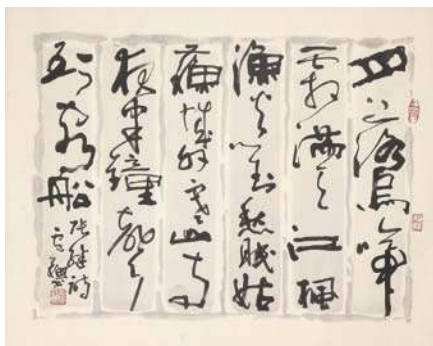 月落烏啼
霜滿天江楓
漁火對愁眠姑
蘇城外寒山寺
夜半鐘聲
到客船
張繼詩